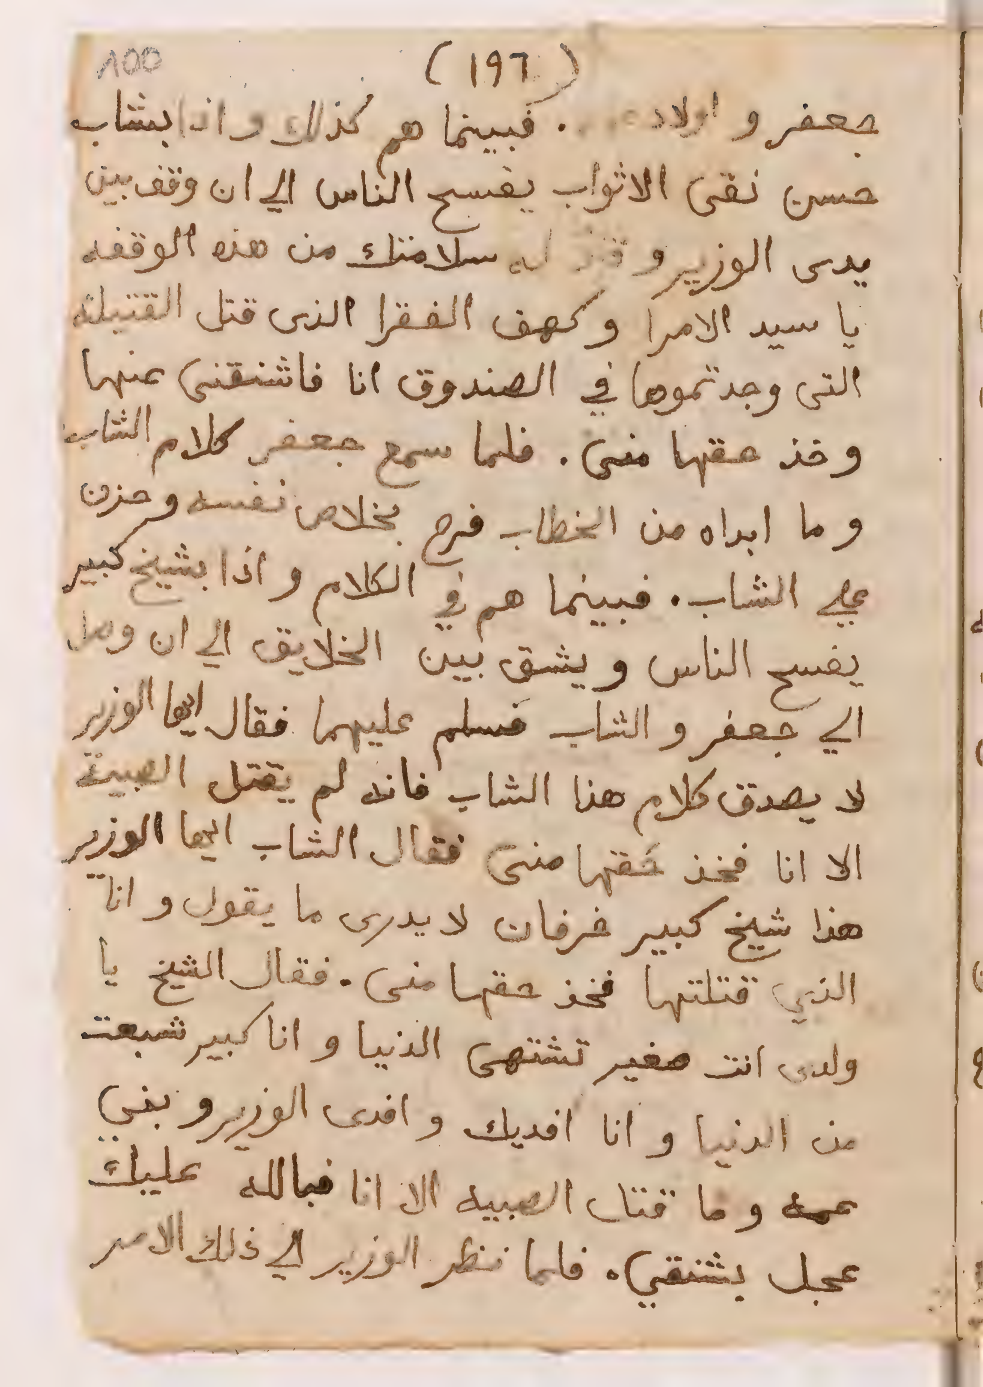 ١٠٥
(١٩٦)
جعفر و اولاد . فبينما هم كذلك و اذا بشاب
حسن نقى الاثواب يفسح الناس الي ان وقف بين
يدى الوزير و له سلامتك من هذه الوقفه
يا سيد الامرا و كهف الفقرا الذى قتل القتيلة
التى وجدتموها في الصندوق انا فاشنقنى عنها
و خذ حقها منى . فلما سمع جعفر كلام الشاب
و ما ابداه من الخطاب فرح بخلاص نفسه و حزن
علي الشاب . فبينما هم في الكلام و اذا بشيخ كبير
يفسح الناس و يشق بين الخلايق الي ان وصل
الي جعفر و الشاب فسلم عليهما فقال ايها الوزير
لا يصدق كلام هذا الشاب فانه لم يقتل الصبية
الا انا فخذ حقها منى فقال الشاب ايها الوزير
هذا شيخ كبير خرفان لا يدرى ما يقول و انا
الذي قتلتها فخذ حقها منى . فقال الشيخ يا
ولدى انت صغير تشتهى الدنيا و انا كبير شبعت
من الدنيا و انا افديك و افدى الوزير و بني
عمه و ما قتل الصبيه الا انا فبالله عليك
عجل بشنقي . فلما نظر الوزير الي ذلك الامر